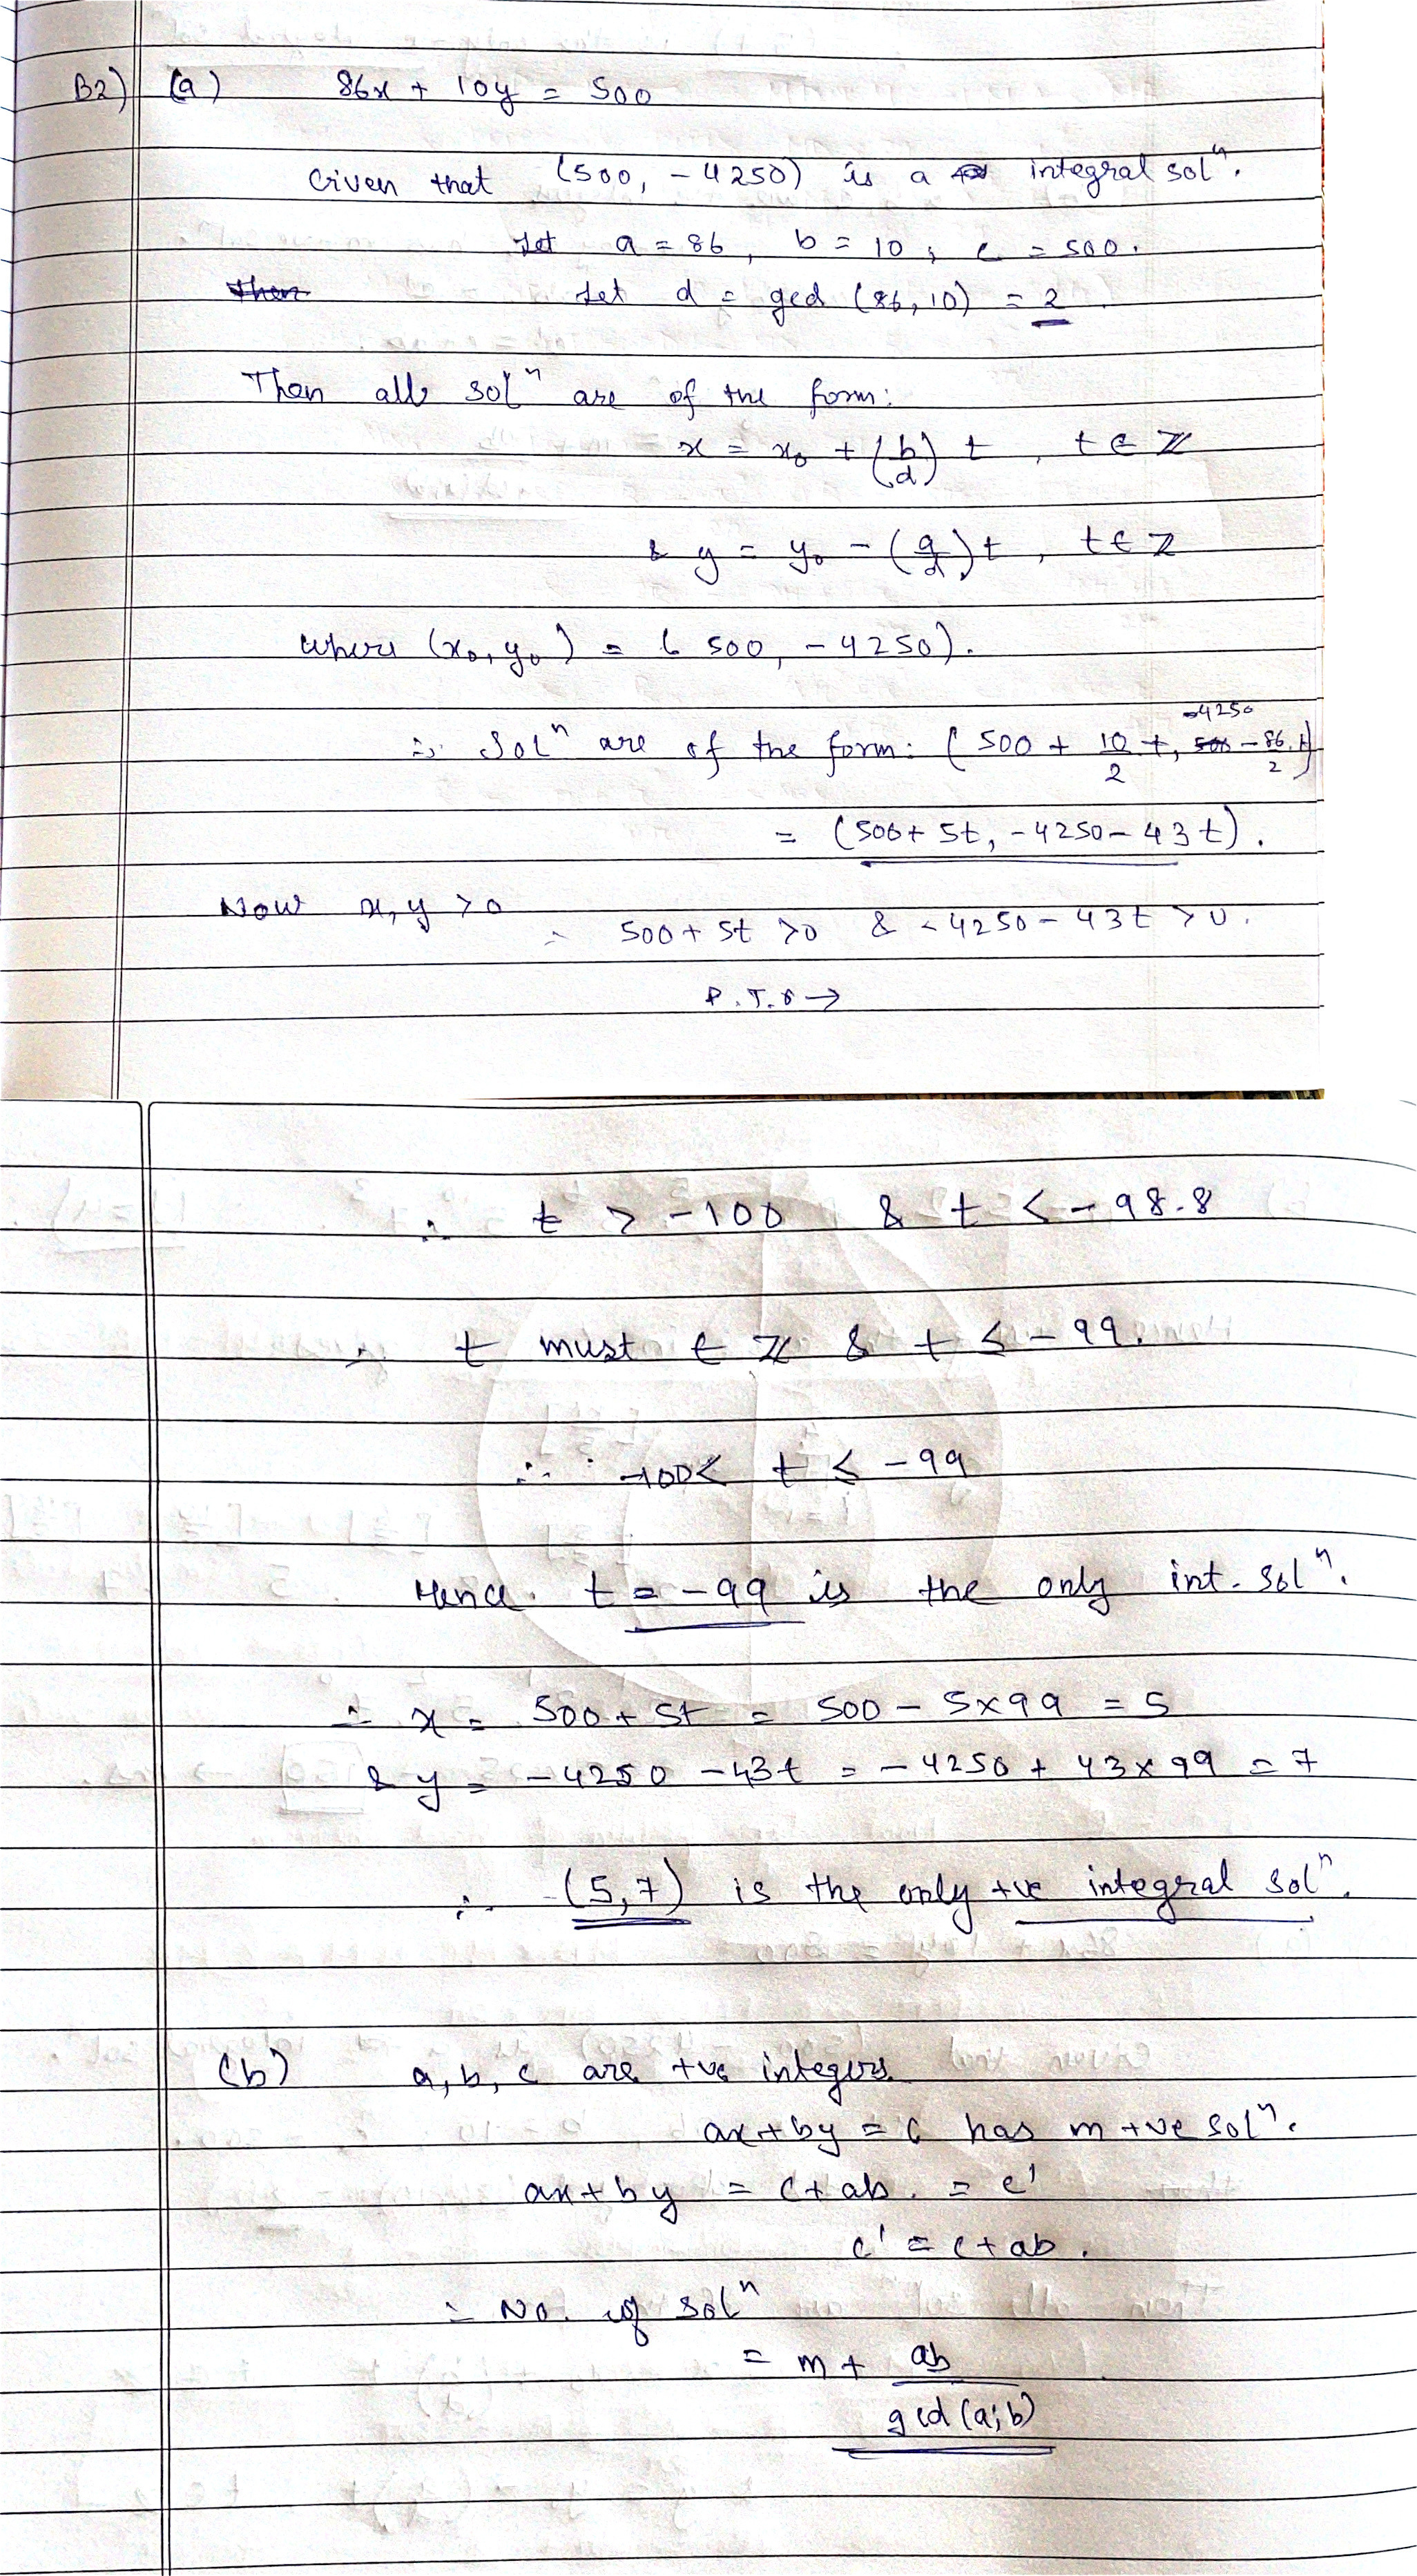 B2) (a) 86x + 10y = 500
Given that (500, -4250) is a integral solⁿ.
Let a = 86, b = 10, c = 500.
Then Let d = gcd (86, 10) = 2
Then all solⁿ are of the form:
x = x₀ + (b/d) t, t ∈ Z
& y = y₀ - (a/d) t, t ∈ Z
where (x₀, y₀) = (500, -4250).
∴ Solⁿ are of the form: (500 + 10/2 t, -4250 - 86/2 t)
= (500 + 5t, -4250 - 43t).
Now x, y > 0
∴ 500 + 5t > 0 & -4250 - 43t > 0.
P.T.O →
∴ t > -100 & t < -98.8
∴ t must ∈ Z & t ≤ -99.
∴ -100 < t ≤ -99
Hence t = -99 is the only int. solⁿ.
∴ x = 500 + 5t = 500 - 5×99 = 5
& y = -4250 - 43t = -4250 + 43×99 = 7
∴ (5, 7) is the only +ve integral solⁿ.
(b) a, b, c are +ve integers.
ax + by = c has m +ve solⁿ.
ax + by = c + ab. = c'
c' = c + ab.
∴ No. of solⁿ
= m + ab/gcd(a,b)